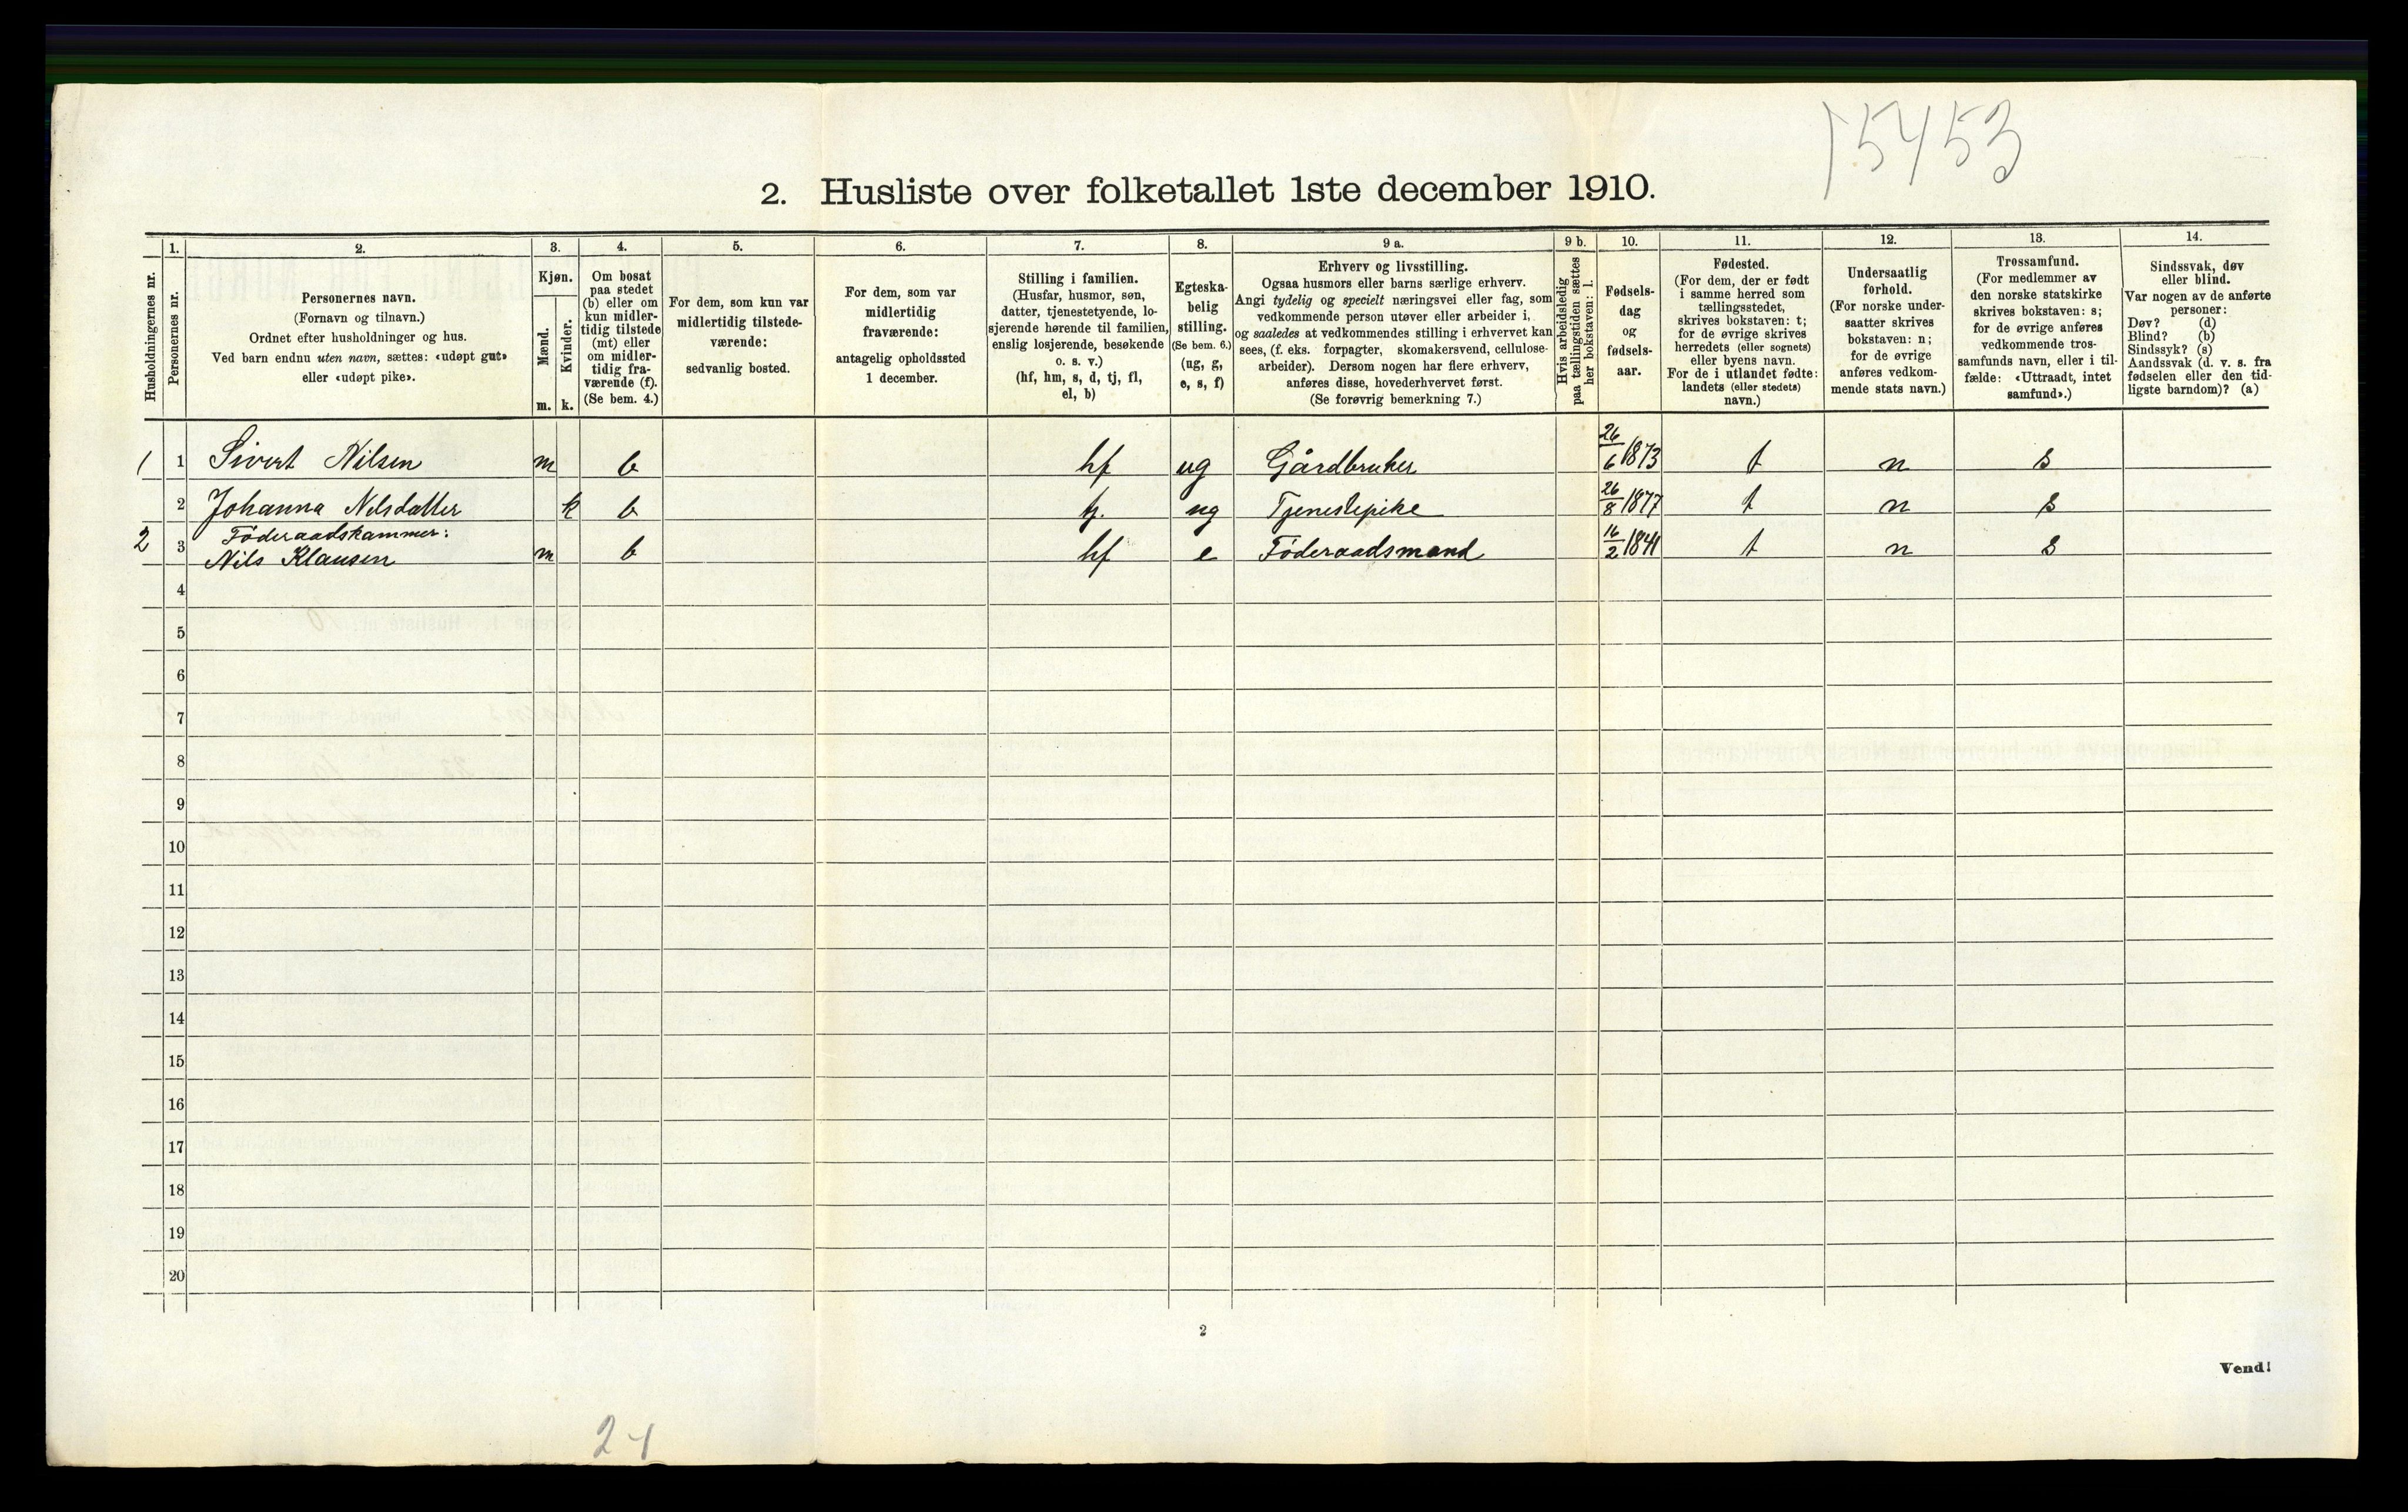 15453
2. Husliste over folketallet 1ste december 1910.
Husholdningernes nr.
1. Personernes nr.
2. Personernes navn.
(Fornavn og tilnavn.)
Ordnet efter husholdninger og hus.
Ved barn endnu uten navn, sættes: «udøpt gut»
eller «udøpt pike».
3. Kjøn.
Mænd. m.
Kvinder. k.
4. Om bosat
paa stedet
(b) eller om
kun midler-
tidig tilstede
(mt) eller
om midler-
tidig fra-
værende (f).
(Se bem. 4.)
5. For dem, som kun var
midlertidig tilstede-
værende:
sedvanlig bosted.
6. For dem, som var
midlertidig
fraværende:
antagelig opholdssted
1 december.
7. Stilling i familien.
(Husfar, husmor, søn,
datter, tjenestetyende, lo-
sjerende hørende til familien,
enslig losjerende, besøkende
o. s. v.)
(hf, hm, s, d, tj, fl,
el, b)
8. Egteska-
belig
stilling.
(Se bem. 6.)
(ug, g,
e, s, f)
9 a. Erhverv og livsstilling.
Ogsaa husmors eller barns særlige erhverv.
Angi tydelig og specielt næringsvei eller fag, som
vedkommende person utøver eller arbeider i,
og saaledes at vedkommendes stilling i erhvervet kan
sees, (f. eks. forpagter, skomakersvend, cellulose-
arbeider). Dersom nogen har flere erhverv,
anføres disse, hovederhvervet først.
(Se forøvrig bemerkning 7.)
9 b. Hvis arbeidsledig
paa tællingstiden sættes
her bokstaven: l.
10. Fødsels-
dag
og
fødsels-
aar.
11. Fødested.
(For dem, der er født
i samme herred som
tællingsstedet,
skrives bokstaven: t;
for de øvrige skrives
herredets (eller sognets)
eller byens navn.
For de i utlandet fødte:
landets (eller stedets)
navn.)
12. Undersaatlig
forhold.
(For norske under-
saatter skrives
bokstaven: n;
for de øvrige
anføres vedkom-
mende stats navn.)
13. Trossamfund.
(For medlemmer av
den norske statskirke
skrives bokstaven: s;
for de øvrige anføres
vedkommende tros-
samfunds navn, eller i til-
fælde: «Uttraadt, intet
samfund».)
14. Sindssvak, døv
eller blind.
Var nogen av de anførte
personer:
Døv? (d)
Blind? (b)
Sindssyk? (s)
Aandssvak (d. v. s. fra
fødselen eller den tid-
ligste barndom)? (a)
1 1 Sivert Nilsen m b hf ug Gårdbruker 26/6 1873 t n s
2 Johanna Nilsdatter k b tj. ug Tjenestepike 26/8 1877 t n s
Føderaadskammer:
2 3 Nils Klausen m b hf e Føderaadsmand 16/2 1841 t n s
4
5
6
7
8
9
10
11
12
13
14
15
16
17
18
19
20
2
Vend!